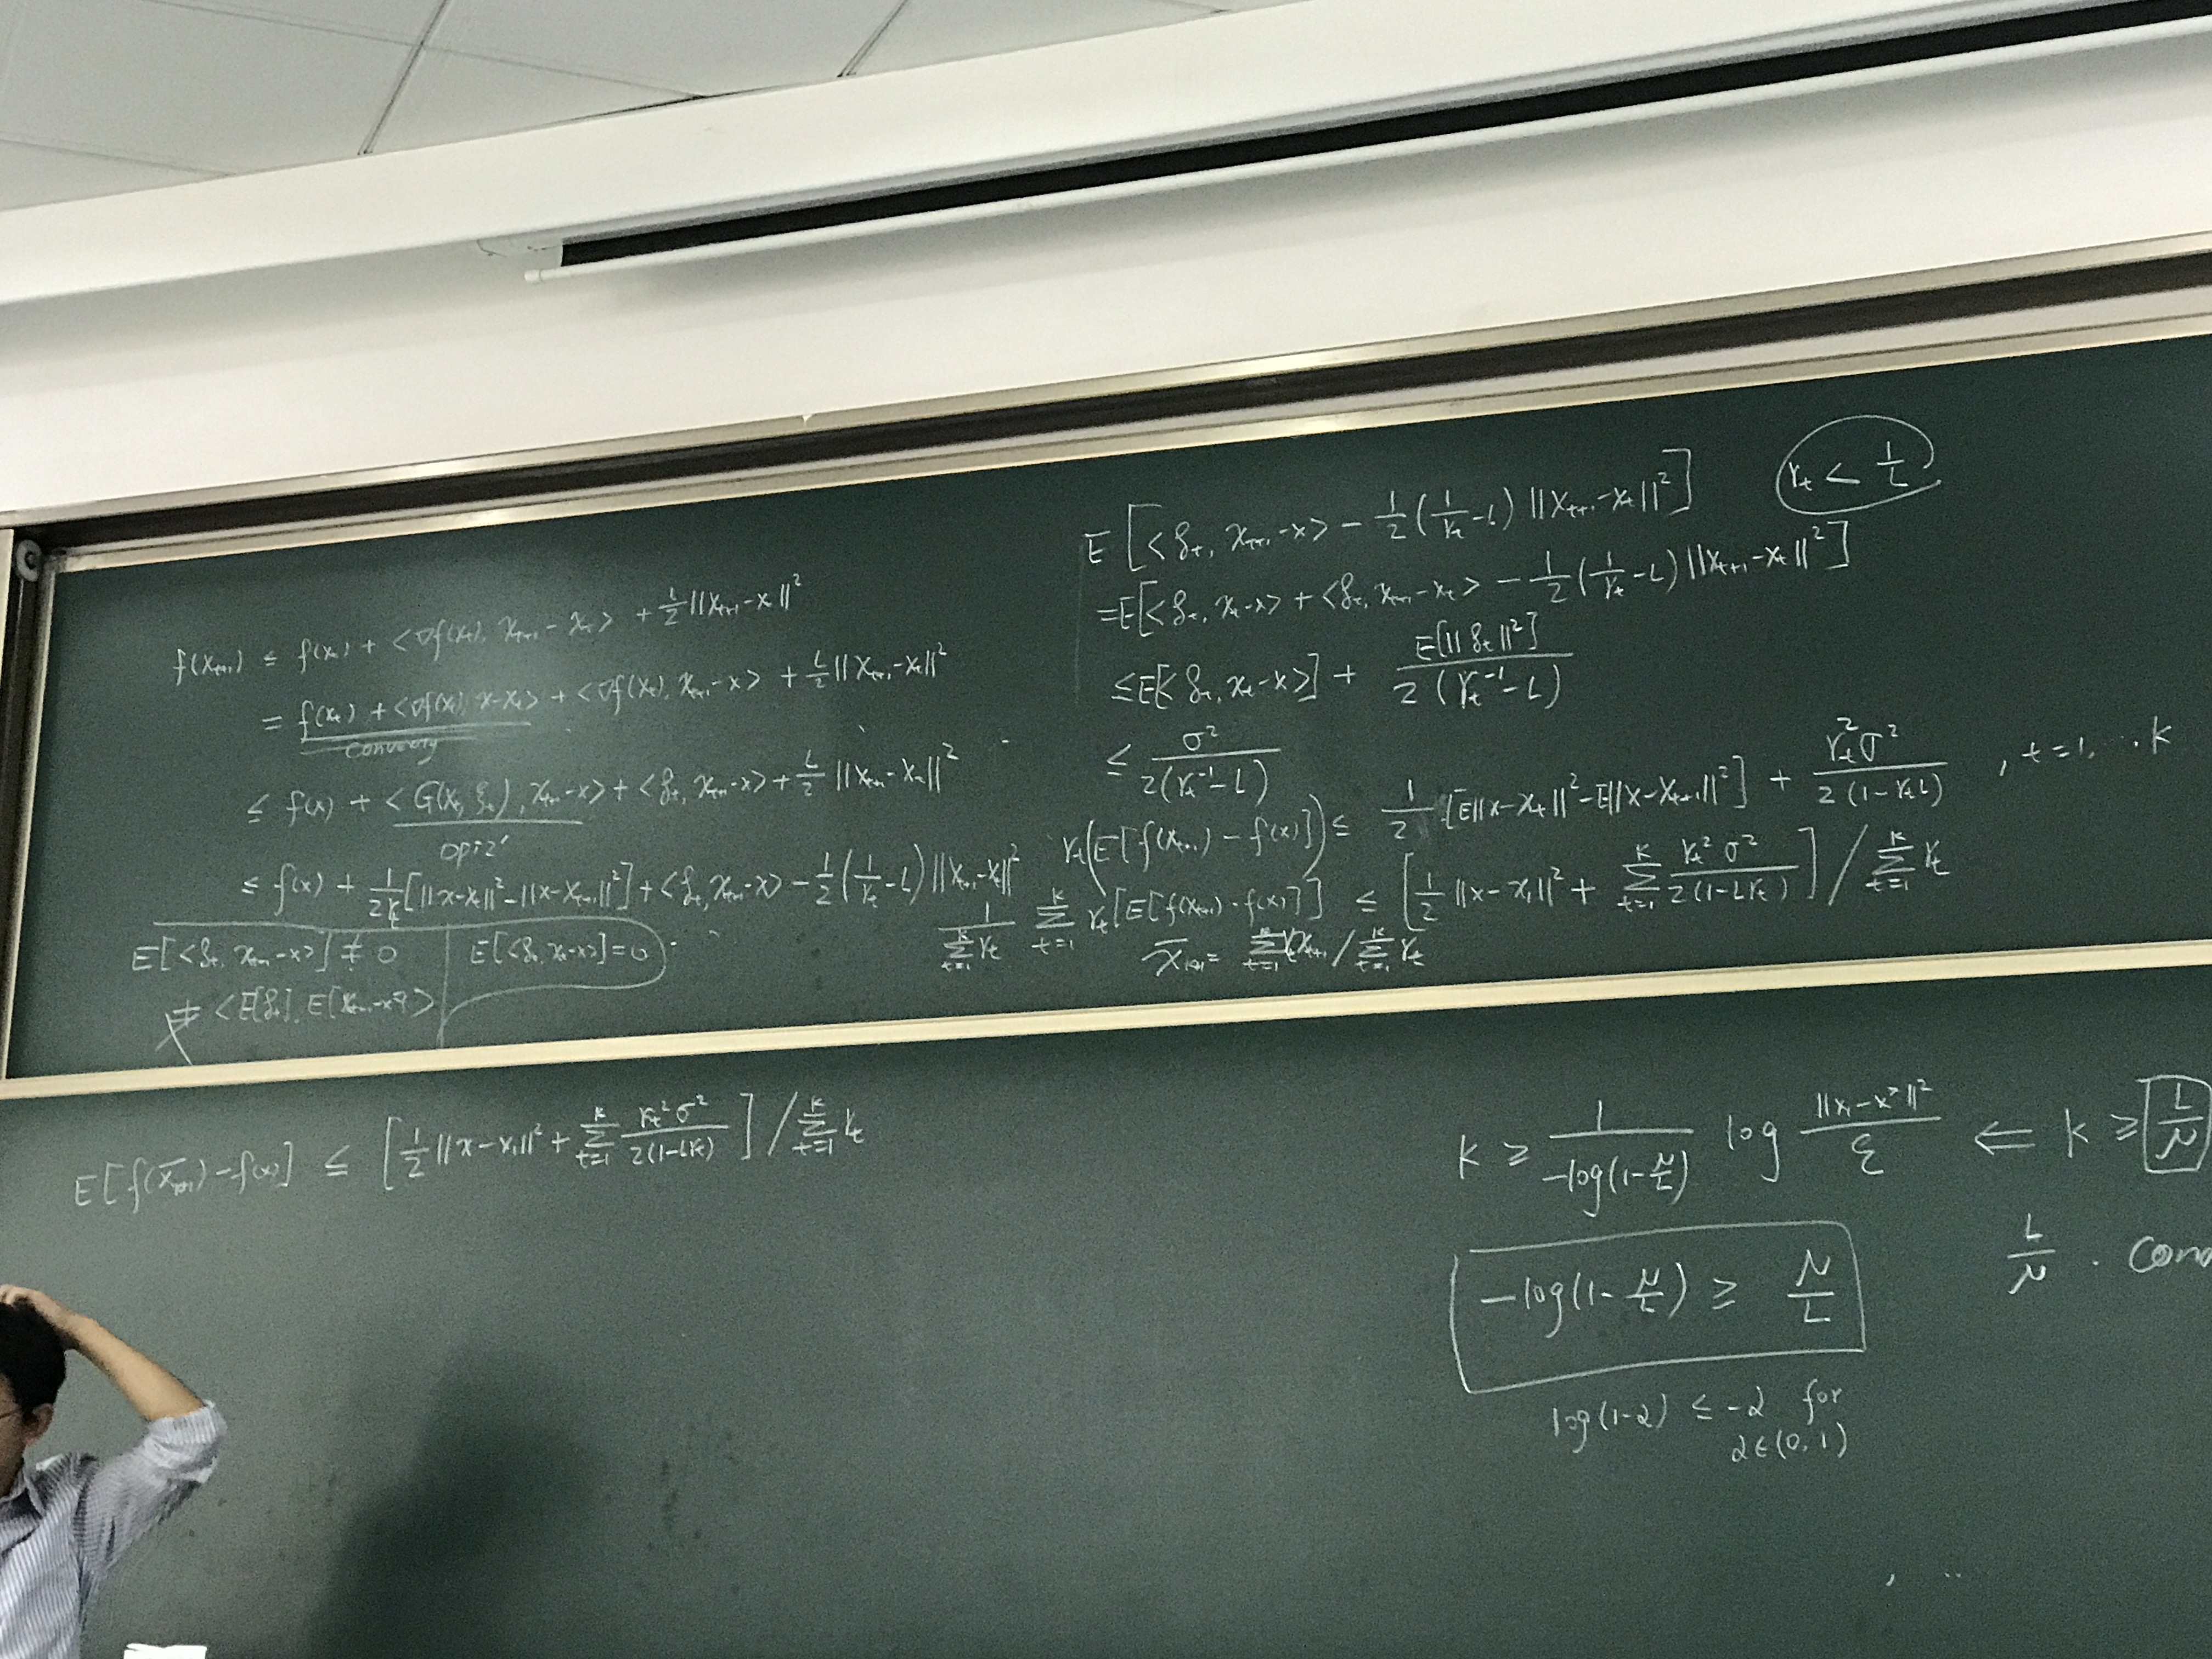 f(x_{t+1}) ≤ f(x_t) + <∇f(x_t), x_{t+1} - x_t> + L/2 ||x_{t+1} - x_t||²
= f(x_t) + <∇f(x_t), x - x_t> + <∇f(x_t), x_{t+1} - x> + L/2 ||x_{t+1} - x_t||²
convexity
≤ f(x) + <G(x_t, ξ_t), x_{t+1} - x> + <δ_t, x_{t+1} - x> + L/2 ||x_{t+1} - x_t||²
≤ f(x) + 1/(2γ_t) [||x - x_t||² - ||x - x_{t+1}||²] + <δ_t, x_{t+1} - x> - 1/2 (1/γ_t - L) ||x_{t+1} - x_t||²
E[<δ_t, x_{t+1} - x>] ≠ 0
E[<δ_t, x_t - x>] = 0
≠ <E[δ_t], E[x_{t+1} - x]>
E[<δ_t, x_{t+1} - x> - 1/2 (1/γ_t - L) ||x_{t+1} - x_t||²]
γ_t < 1/L
= E[<δ_t, x_t - x> + <δ_t, x_{t+1} - x_t> - 1/2 (1/γ_t - L) ||x_{t+1} - x_t||²]
≤ E[<δ_t, x_t - x>] + E[||δ_t||²] / 2(γ_t^{-1} - L)
≤ σ² / 2(γ_t^{-1} - L)
γ_t(E[f(x_{t+1}) - f(x)]) ≤ 1/2 [E||x - x_t||² - E||x - x_{t+1}||²] + γ_t²σ² / 2(1 - γ_t L), t = 1, ... k
1/∑_{t=1}^k γ_t ∑_{t=1}^k γ_t [E[f(x_{t+1}) - f(x)]] ≤ [1/2 ||x - x_1||² + ∑_{t=1}^k γ_t²σ² / 2(1 - Lγ_t)] / ∑_{t=1}^k γ_t
x̄_{k+1} = ∑_{t=1}^k γ_t x_{t+1} / ∑_{t=1}^k γ_t
E[f(x̄_{k+1}) - f(x)] ≤ [1/2 ||x - x_1||² + ∑_{t=1}^k γ_t²σ² / 2(1 - Lγ_t)] / ∑_{t=1}^k γ_t
k ≥ 1/(-log(1 - μ/L)) log ||x_1 - x*||²/ε ⇐ k ≥ L/μ
-log(1 - μ/L) ≥ μ/L
L/μ . Cond
log(1-α) ≤ -α for
α∈(0,1)